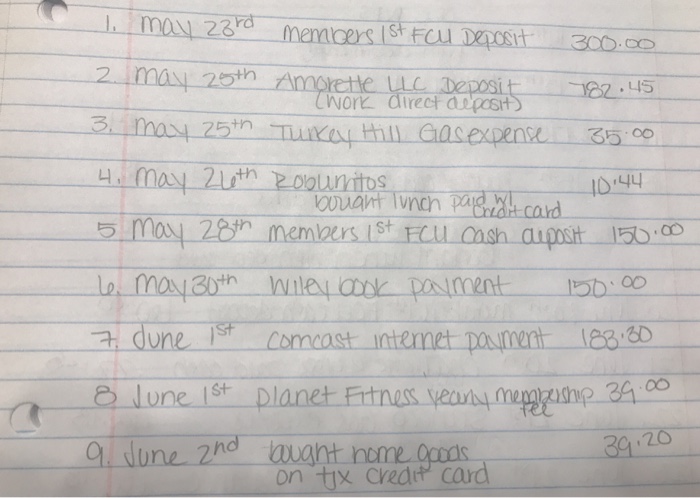 1. may 23rd members 1st FCU Deposit 300.00
2. may 25th Amorette LLC Deposit 782.45
(work direct deposit)
3. may 25th Turkey Hill Gas expense 35.00
4. may 26th Roburritos 10.44
bought lunch paid w/ credit card
5 may 28th members 1st FCU cash deposit 150.00
6. may 30th Wiley book payment 150.00
7. June 1st comcast internet payment 183.30
8 June 1st planet Fitness yearly membership fee 39.00
9. June 2nd bought home goods 39.20
on tjx credit card